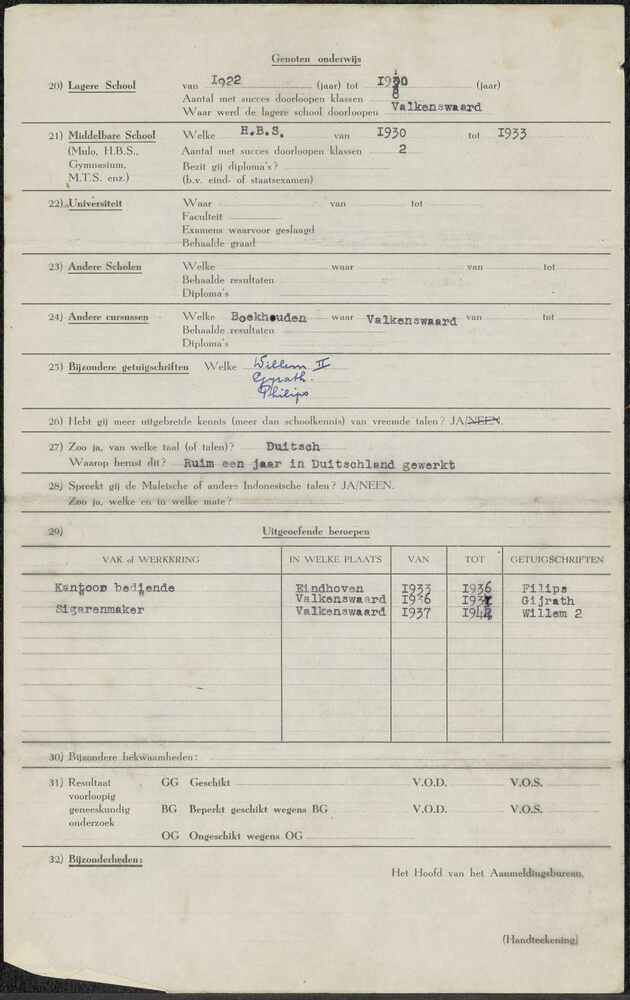 Genoten onderwijs
20) Lagere School van 1922 (jaar) tot 1930 (jaar)
Aantal met succes doorloopen klassen 8
Waar werd de lagere school doorloopen Valkenswaard
21) Middelbare School Welke H.B.S. van 1930 tot 1933
(Mulo, H.B.S., Aantal met succes doorloopen klassen 2
Gymnasium, Bezit gij diploma's?
M.T.S. enz.) (b.v. eind- of staatsexamen)
22) Universiteit Waar van tot
Faculteit
Examens waarvoor geslaagd
Behaalde graad
23) Andere Scholen Welke waar van tot
Behaalde resultaten
Diploma's
24) Andere cursussen Welke Boekhouden waar Valkenswaard van tot
Behaalde resultaten
Diploma's
25) Bijzondere getuigschriften Welke Willem II
Gyrath.
Philips
26) Hebt gij meer uitgebreide kennis (meer dan schoolkennis) van vreemde talen? JA/NEEN.
27) Zoo ja, van welke taal (of talen)? Duitsch
Waarop berust dit? Ruim een jaar in Duitschland gewerkt
28) Spreekt gij de Maleische of andere Indonesische talen? JA/NEEN.
Zoo ja, welke en in welke mate?
29) Uitgeoefende beroepen
VAK of WERKKRING IN WELKE PLAATS VAN TOT GETUIGSCHRIFTEN
Kantoor bediende Eindhoven 1933 1936 Filips
Valkenswaard 1936 1937 Gijrath
Sigarenmaker Valkenswaard 1937 1944 Willem 2
30) Bijzondere bekwaamheden:
31) Resultaat GG Geschikt V.O.D. V.O.S.
voorloopig
geneeskundig BG Beperkt geschikt wegens BG V.O.D. V.O.S.
onderzoek
OG Ongeschikt wegens OG
32) Bijzonderheden:
Het Hoofd van het Aanmeldingsbureau,
(Handteekening)